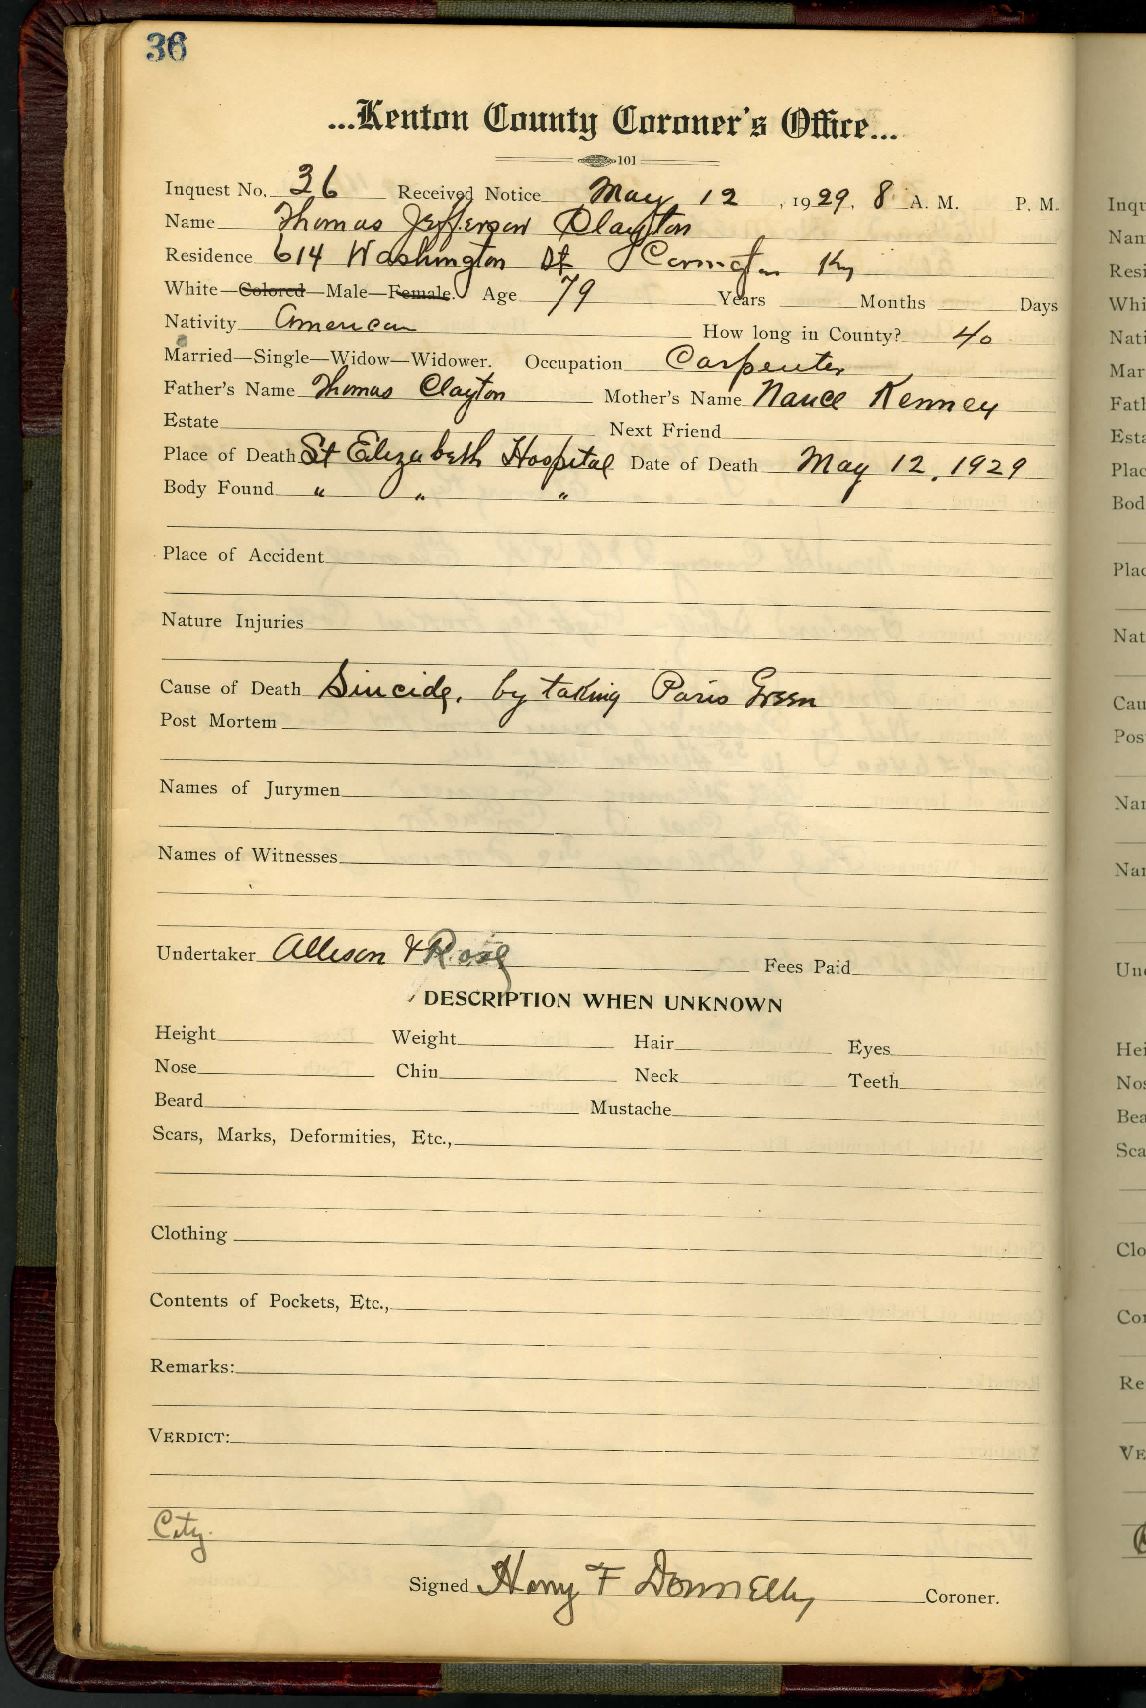 36
...Kenton County Coroner's Office...
101
Inquest No. 36 Received Notice May 12, 1929, 8 A. M. P. M.
Name Thomas Jefferson Clayton
Residence 614 Washington St Covington Ky
White—Colored—Male—Female. Age 79 Years Months Days
Nativity American How long in County? 40
Married—Single—Widow—Widower. Occupation Carpenter
Father's Name Thomas Clayton Mother's Name Nance Kenney
Estate Next Friend
Place of Death St Elizabeth Hospital Date of Death May 12, 1929
Body Found " " "
Place of Accident
Nature Injuries
Cause of Death Suicide, by taking Paris Green
Post Mortem
Names of Jurymen
Names of Witnesses
Undertaker Allison & Rose Fees Paid
DESCRIPTION WHEN UNKNOWN
Height Weight Hair Eyes
Nose Chin Neck Teeth
Beard Mustache
Scars, Marks, Deformities, Etc.,
Clothing
Contents of Pockets, Etc.,
Remarks:
VERDICT:
City.
Signed Harry F Donnelly Coroner.